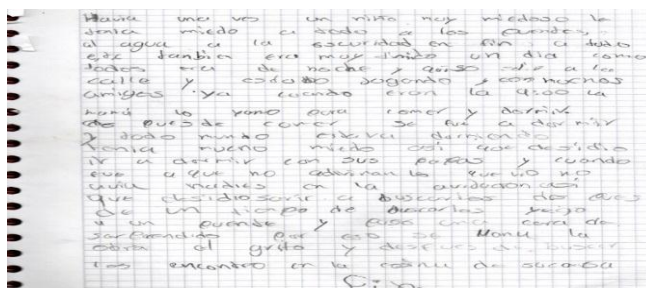 Havia una ves un niño muy miedoso le
tenia miedo a todo a los duendes,
al agua a la oscuridad en fin a todo
este tambien era muy lindo un dia como
todos era de noche y quiso salir a la
calle y estabo jugondo y con muchos
amigos ya cuando eron la 9:00 la
mamá lo yamo para comer y dormir.
de pues de comer se fue a dormir
y todo mundo estava dormiendo
tenia mucho miedo asi que desidio
ir a dormir con sus papas y cuando
fue a que no adevinan lo que vio no
avia nadies en la avitacion asi
que desidio salir a buscarlos de pues
de un tiempo de buscarlos
a un duende y puso una cara de
sorprendido por eso se llama la
obra el grito y despues de buscar
los encontro en la cosina de su casa
Fin